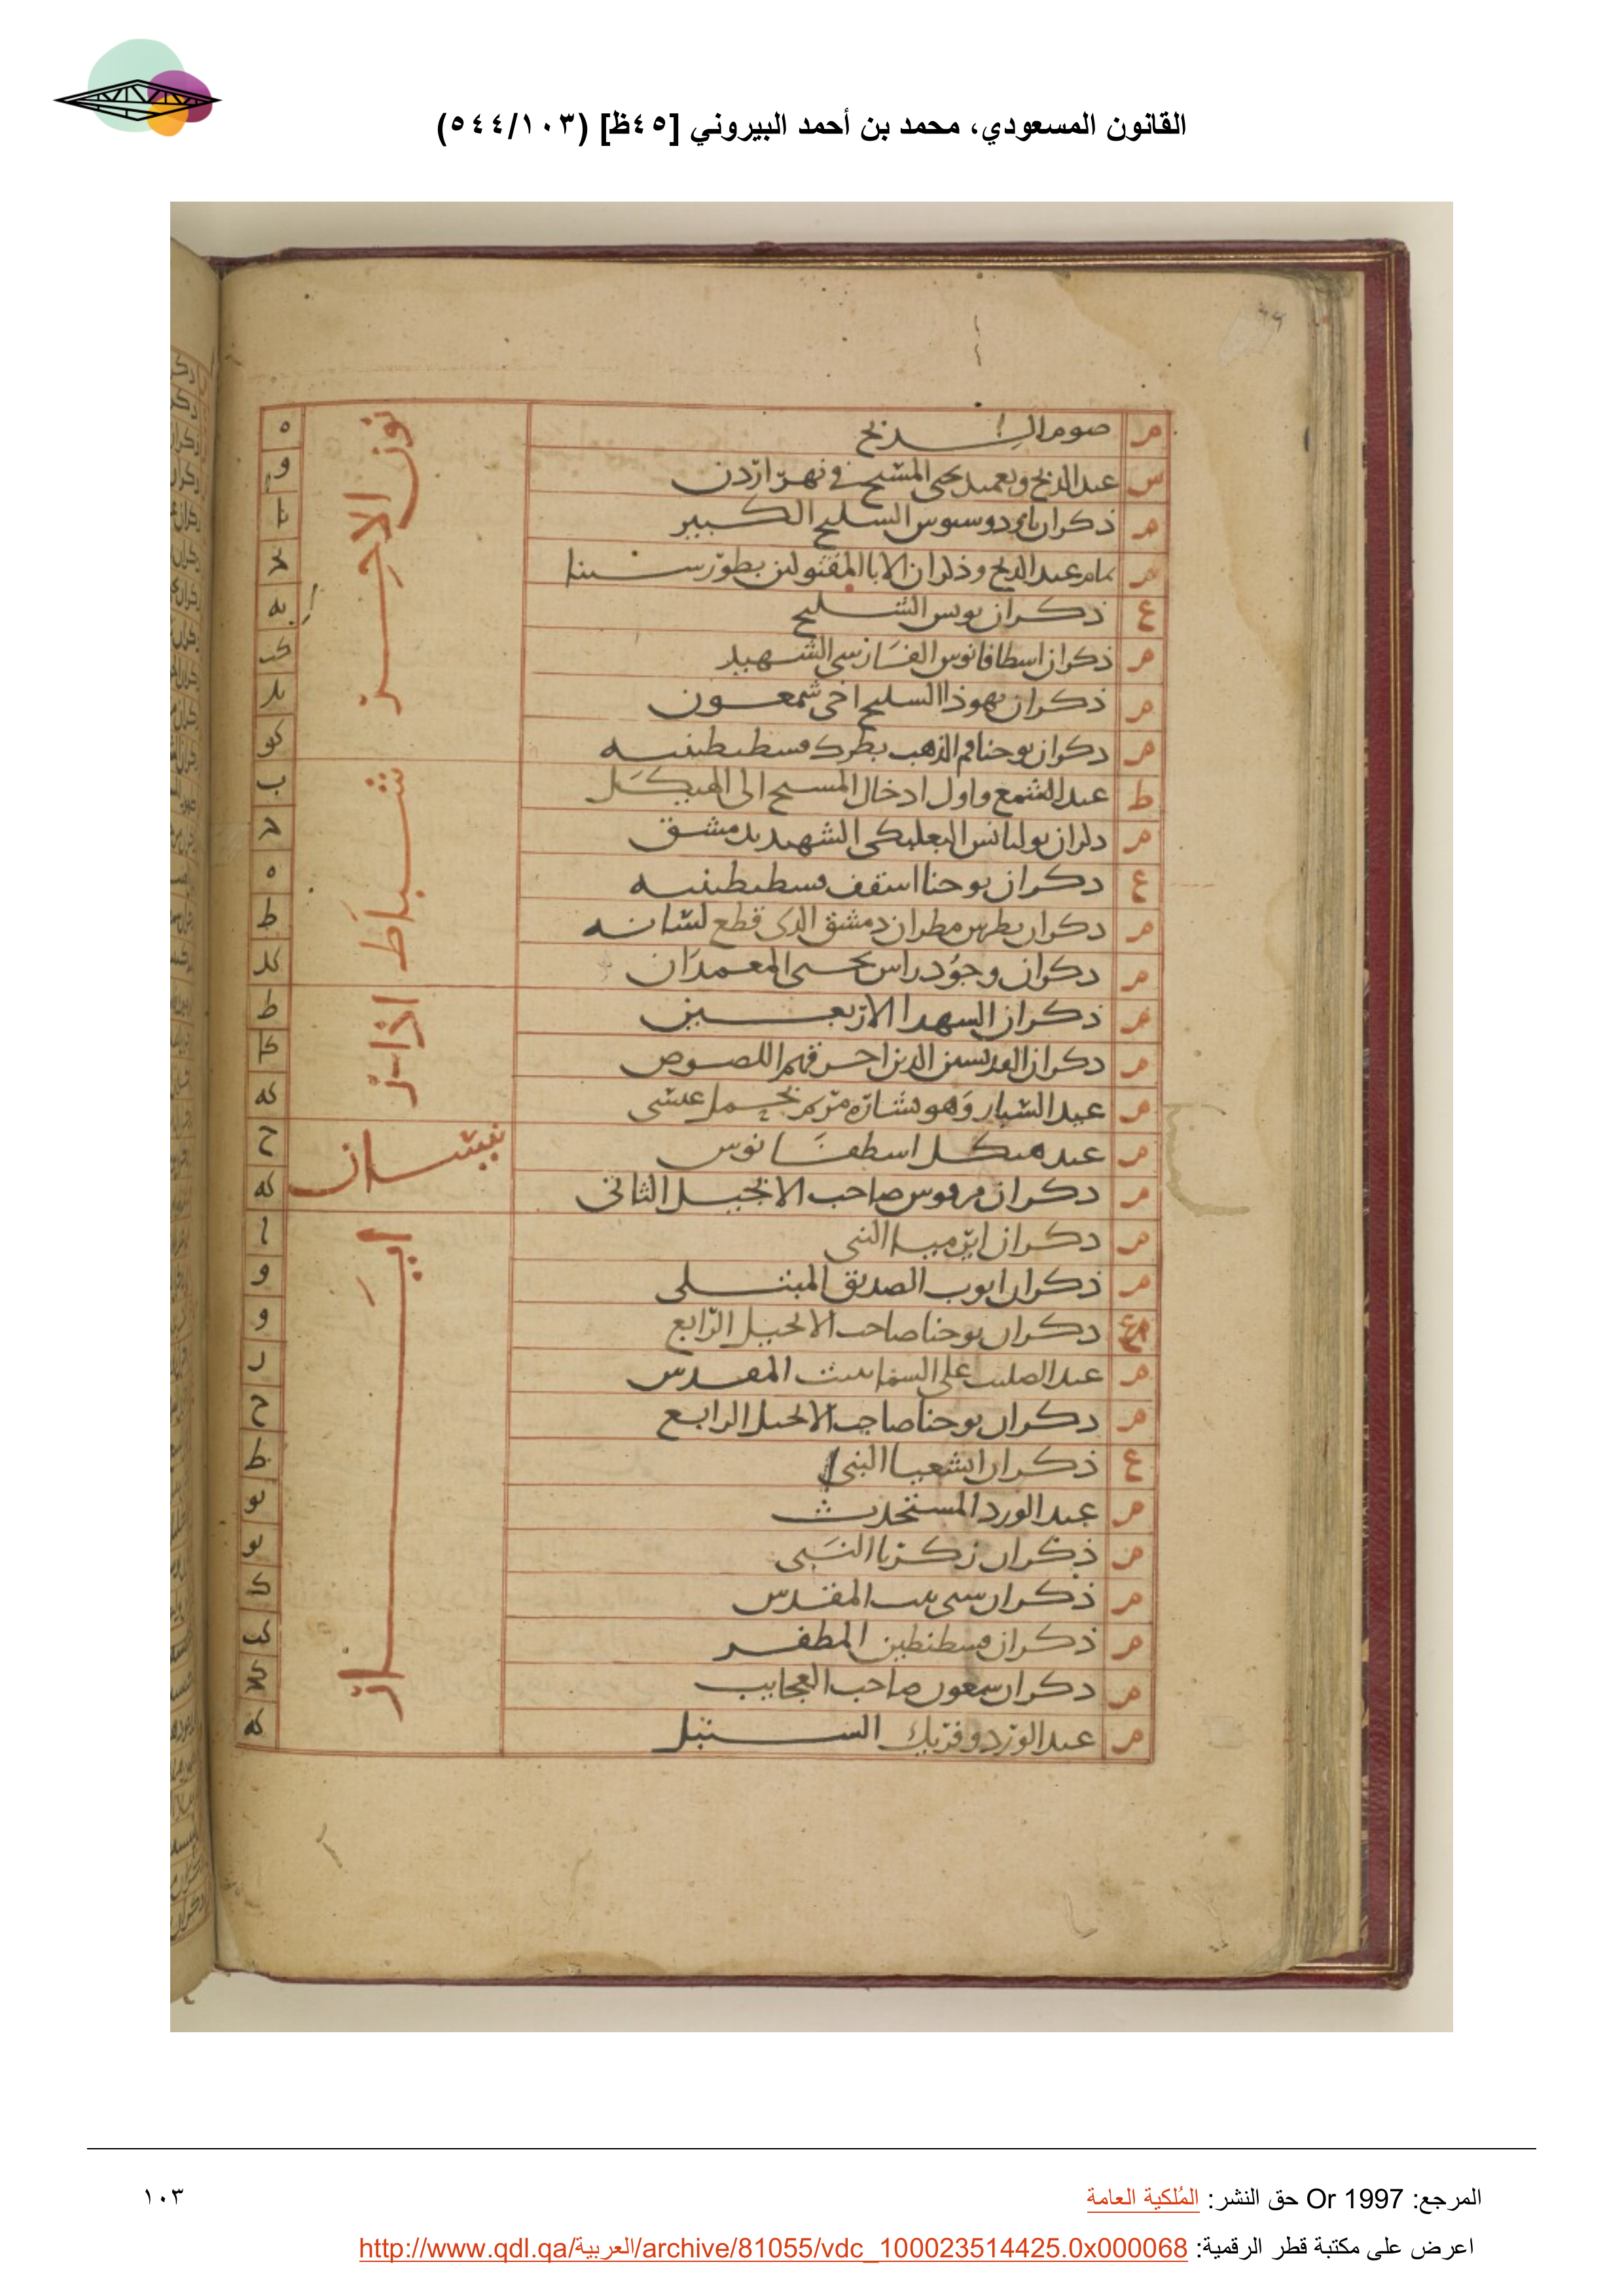 القانون المسعودي، محمد بن أحمد البيروني [٤٥ظ] (٥٤٤/١٠٣)
م صوم الدنح ه
س عيد الدنح وتعميد يحيى المسيح في نهر اردن و
م ذكران السليح الكبير يا
م تمام عيد الدنح وذكران الابا المقتولين بطور سينا
ع ذكران بولس السليح يه
م ذكران اسطافانوس الشهيد كب
م ذكران يهوذا السليح اخي شمعون
م ذكران يوحنا فم الذهب بطرك قسطنطينيه كو
كانون الاخر
ط عيد الشمع واول ادخال المسيح الى الهيكل ب
م البعلبكي الشهيد بدمشق ح
ع ذكران يوحنا اسقف قسطنطينيه ه
م ذكران بطرس مطران دمشق الذي قطع لسانه ط
م ذكران وجود راس يحيى المعمدان كد
شباط
م ذكران الشهدا الاربعين ط
م ذكران القديسين الذين احرقهم اللصوص كا
م عيد السبار وهو بشارة مريم بحمل عيسى كه
اذار
م عيد هيكل اسطفانوس ح
م ذكران مرقوس صاحب الانجيل الثاني كه
نيسان
م ذكران ايرميا النبي ا
م ذكران ايوب الصديق المبتلى و
ذكران يوحنا صاحب الانجيل الرابع و
م عيد الصليب على السما ببيت المقدس ز
م ذكران يوحنا صاحب الانجيل الرابع ح
ع ذكران اشعيا النبي ط
م عيد الورد المستحدث يو
م ذكران زكريا النبي يو
م ذكران سبي بيت المقدس ك
م ذكران قسطنطين المظفر كب
م ذكران سمعون صاحب العجايب
م عيد الورد وفريك السنبل كه
ايار
المرجع: Or 1997 حق النشر: المُلكية العامة
١٠٣
اعرض على مكتبة قطر الرقمية: http://www.qdl.qa/العربية/archive/81055/vdc_100023514425.0x000068